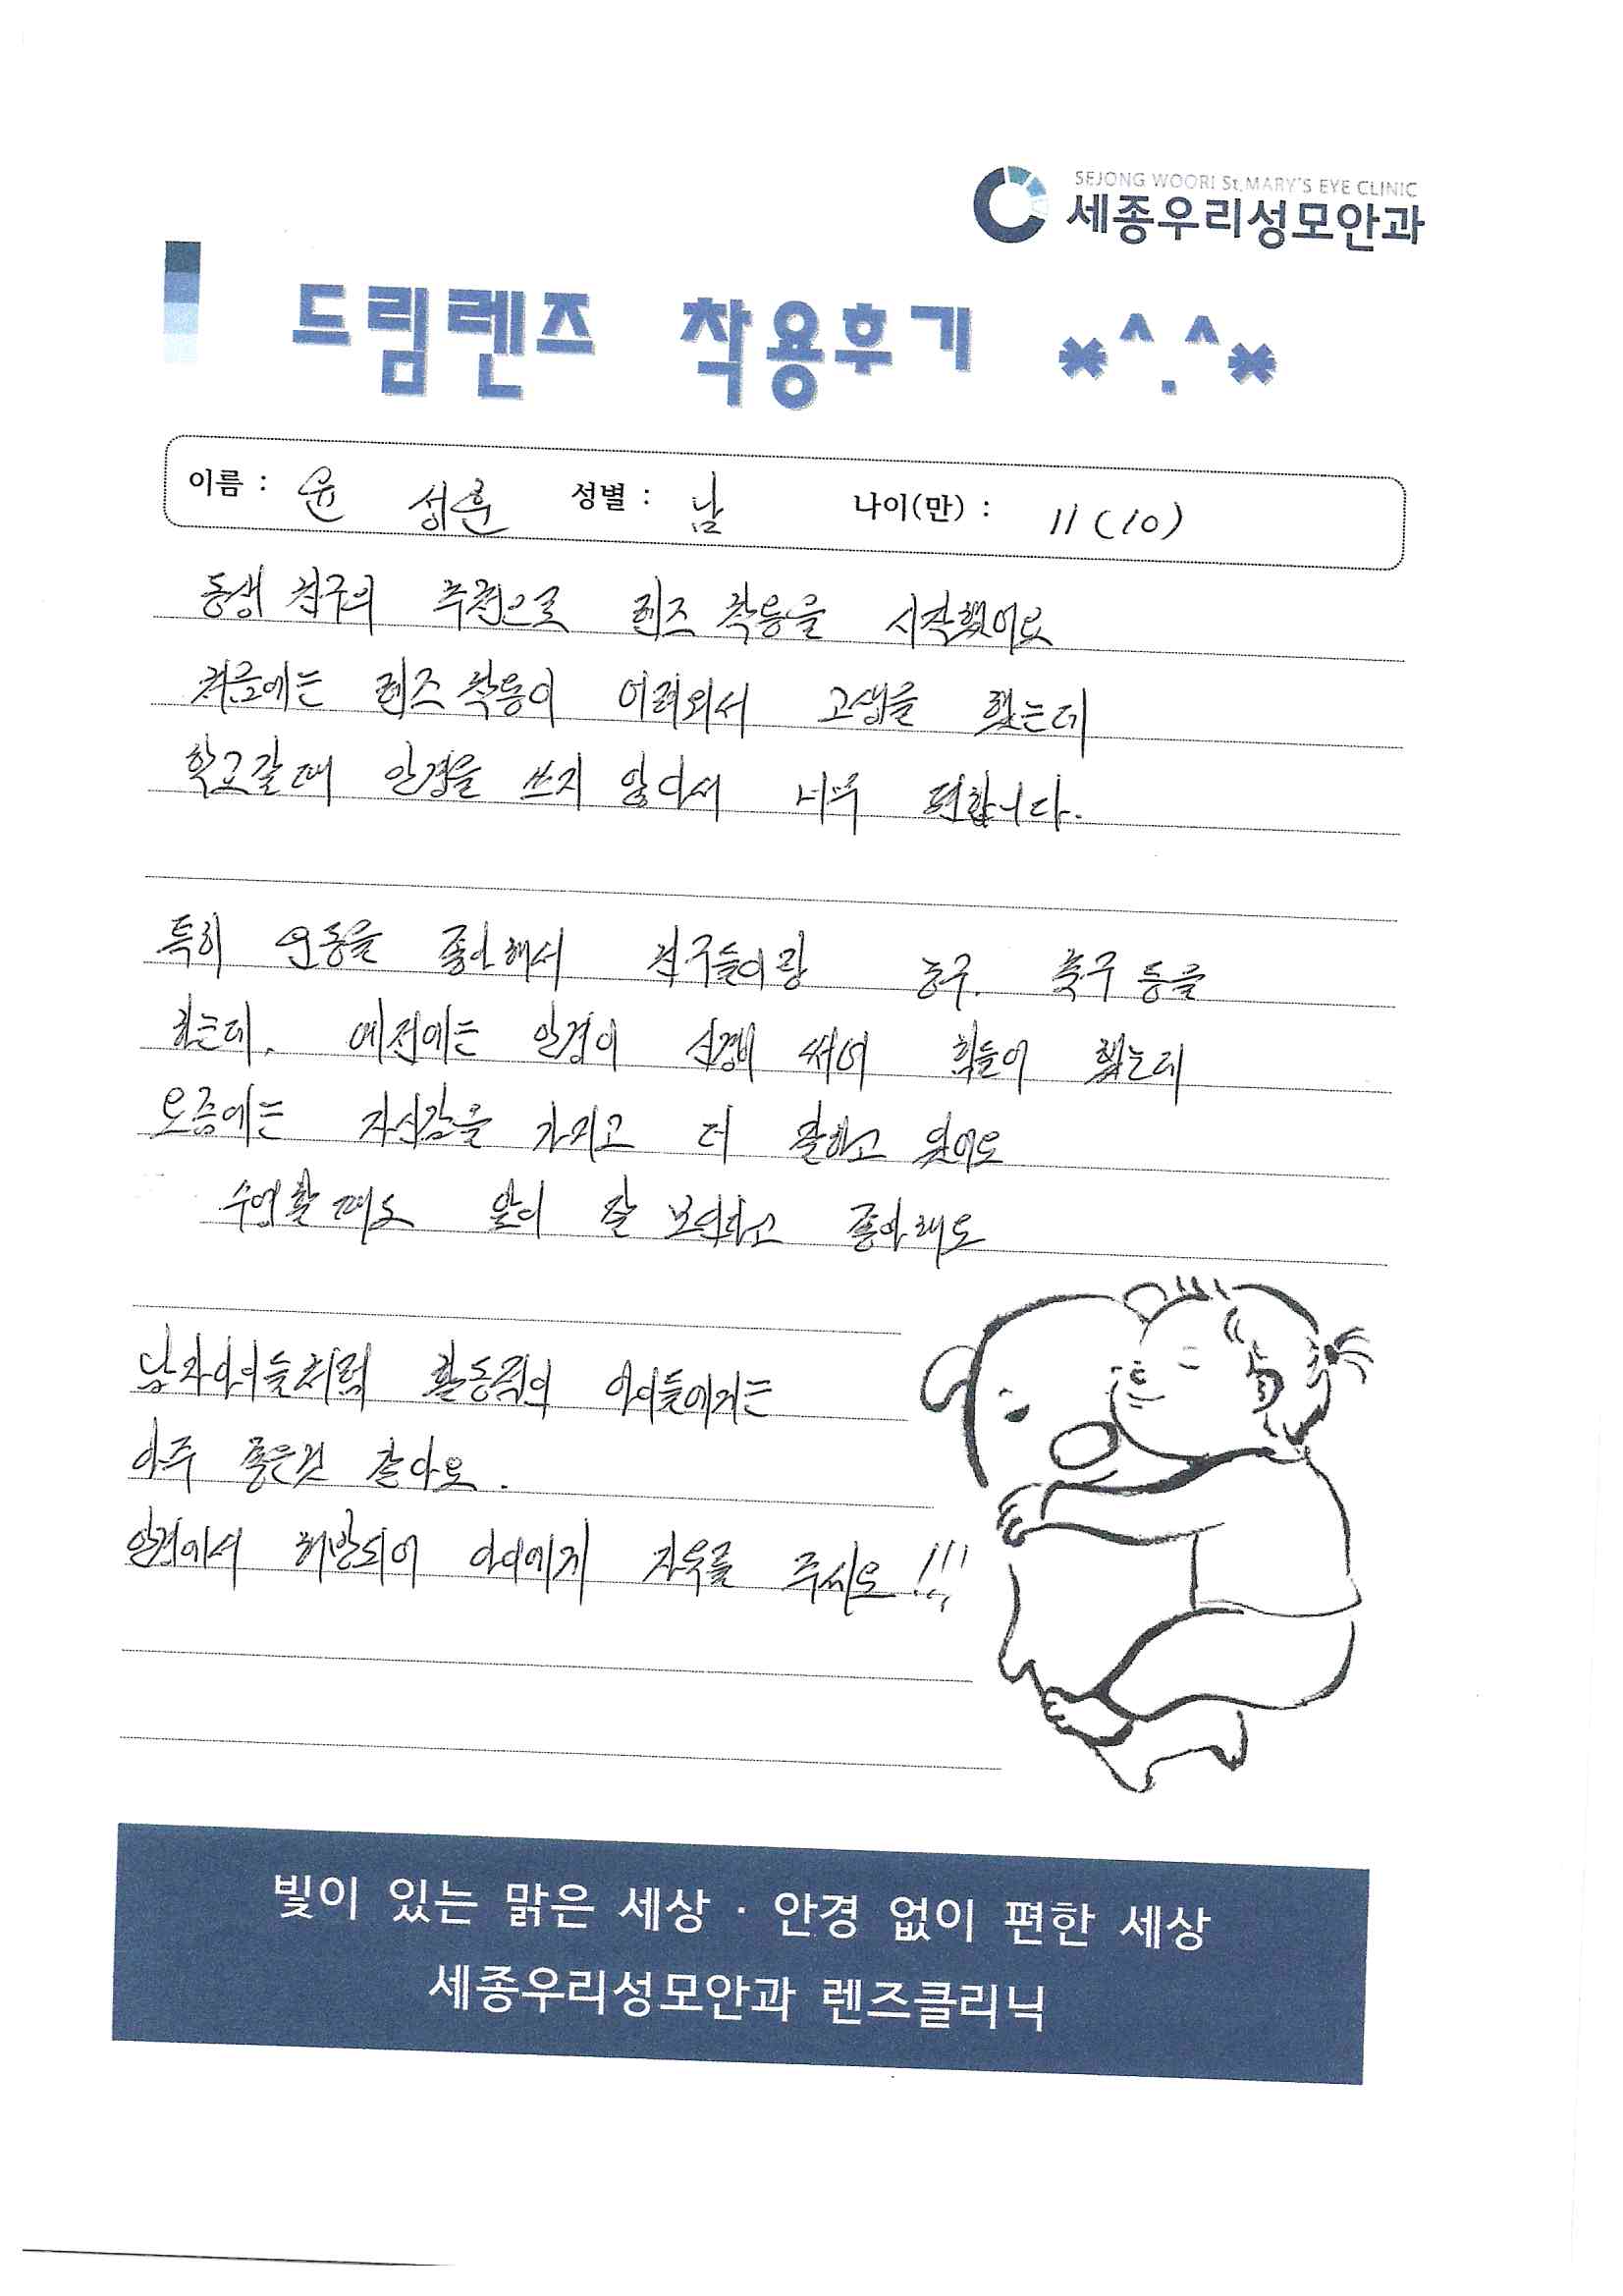 SEJONG WOORI St.MARY'S EYE CLINIC
세종우리성모안과
드림렌즈 착용후기 *^.^*
이름 : 윤 성훈 성별 : 남 나이(만) : 11(10)
동생 친구의 추천으로 렌즈 착용을 시작했어요
처음에는 렌즈 착용이 어려워서 고생을 했는데
학교갈때 안경을 쓰지 않아서 너무 편합니다.
특히 운동을 좋아해서 친구들이랑 농구, 축구 등을
하는데, 예전에는 안경이 신경이 쓰여 힘들어 했는데
요즘에는 자신감을 가지고 더 잘하고 있어요
수영할 때도 앞이 잘 보인다고 좋아해요
남자아이들처럼 활동적인 아이들에게는
아주 좋은것 같아요.
안경에서 해방되어 아이에게 자유를 주세요!!!
빛이 있는 맑은 세상 · 안경 없이 편한 세상
세종우리성모안과 렌즈클리닉